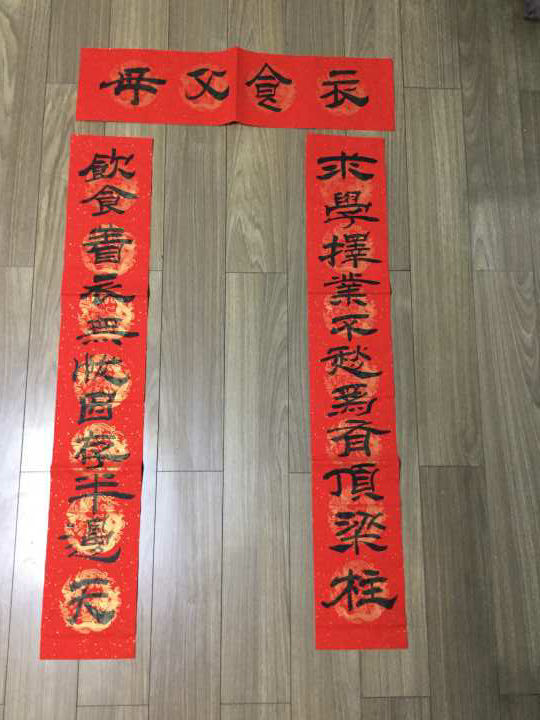 衣食父母
求學擇業不愁爲有頂梁柱
飲食着衣無忧因存半邊天